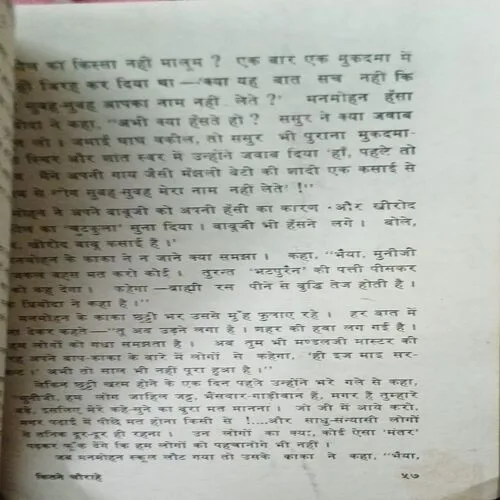 का किस्सा नहीं मालूम ? एक बार एक मुकदमा में
जिरह कर दिया था—'क्या यह बात सच नहीं कि
सुबह-सुबह आपका नाम नहीं लेते ?' मनमोहन हँसा
ने कहा, "अभी क्या हँसते हो ? ससुर ने क्या जवाब
लो । जमाई घाघ वकील, तो ससुर भी पुराना मुकदमा-
स्थिर और शांत स्वर में उन्होंने जवाब दिया 'हाँ, पहले तो
मैंने अपनी गाय जैसी मँझली बेटी की शादी एक कसाई से
से लोग सुबह-सुबह मेरा नाम नहीं लेते' !"
ने अपने बाबूजी को अपनी हँसी का कारण और खीरोद
का 'चुटकुला' सुना दिया । बाबूजी भी हँसने लगे । बोले,
खीरोद बाबू कसाई है ।'
मनमोहन के काका ने न जाने क्या समझा । कहा, "भैया, मुनीजी
बहस मत करो कोई । तुरन्त 'भटपुरैन' की पत्ती पीसकर
को कह देगा । कहेगा—ब्राह्मी रस पीने से बुद्धि तेज होती है ।
ने कहा है ।"
मनमोहन के काका छुट्टी भर उससे मुँह फुलाए रहे । हर बात में
देकर कहते—"तू अब उड़ने लगा है । शहर की हवा लग गई है ।
हम लोगों को गधा समझता है । अब तुम भी मण्डलजी मास्टर की
अपने बाप-काका के बारे में लोगों से कहेगा, 'ही इज माइ सर-
।' अभी तो साल भी नहीं पूरा हुआ है ।"
लेकिन छुट्टी खत्म होने के एक दिन पहले उन्होंने भरे गले से कहा,
"मुनीजी, हम लोग जाहिल जट्ट, भैंसवार-गाड़ीवान हैं, मगर हैं तुम्हारे
बड़े, इसलिए मेरे कहे-सुने का बुरा मत मानना । जो जी में आये करो,
मगर पढ़ाई में पीछे मत होना किसी से !....और साधु-संन्यासी लोगों
से तनिक दूर-दूर ही रहना । उन लोगों का क्या, कोई ऐसा 'मंतर'
पढ़कर फूँक देंगे कि हम लोगों को पहचानोगे भी नहीं ।
जब मनमोहन स्कूल लौट गया तो उसके काका ने कहा, "भैया,
कितने चौराहे
५७